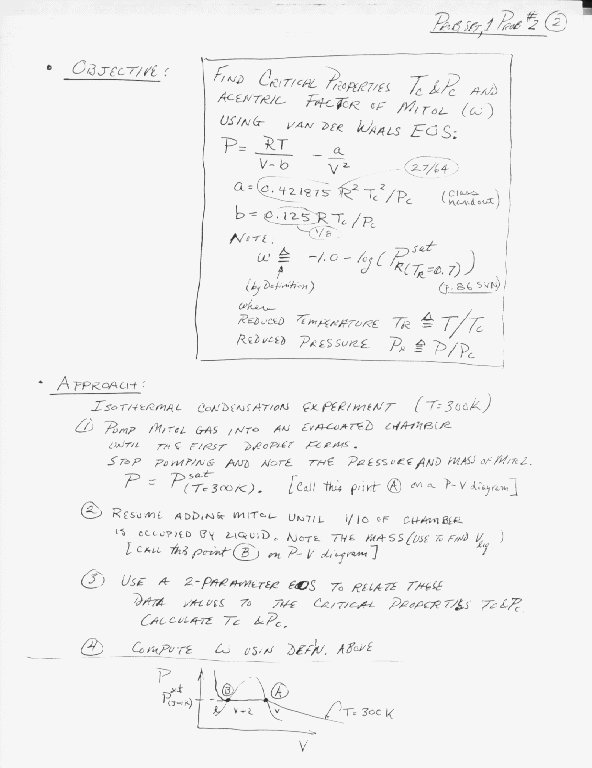 PROB SET 1 PROB #2 (2)
• OBJECTIVE:
FIND CRITICAL PROPERTIES Tc & Pc AND
ACENTRIC FACTOR OF MITOL (ω)
USING VAN DER WAALS EOS:
P = RT/(V-b) - a/V²
27/64
a = 0.421875 R² Tc²/Pc (class handout)
b = 0.125 R Tc/Pc
1/8
NOTE.
ω ≜ -1.0 - log(P_R^sat (T_R=0.7))
(by Definition) (P. 86 SVN)
where
REDUCED TEMPERATURE TR ≜ T/Tc
REDUCED PRESSURE PR ≜ P/Pc
• APPROACH:
ISOTHERMAL CONDENSATION EXPERIMENT (T=300K)
(1) PUMP MITOL GAS INTO AN EVACUATED CHAMBER
UNTIL THE FIRST DROPLET FORMS.
STOP PUMPING AND NOTE THE PRESSURE AND MASS OF MITOL.
P = P^sat (T=300K). [Call this point (A) on a P-V diagram]
(2) RESUME ADDING MITOL UNTIL 1/10 OF CHAMBER
IS OCCUPIED BY LIQUID. NOTE THE MASS (USE TO FIND Vliq)
[CALL this point (B) on P-V diagram]
(3) USE A 2-PARAMETER EOS TO RELATE THESE
DATA VALUES TO THE CRITICAL PROPERTIES Tc & Pc.
CALCULATE Tc & Pc.
(4) COMPUTE ω USIN DEF'N. ABOVE
P
P^sat (300K)
(B) (A)
l v-l v
T=300K
V